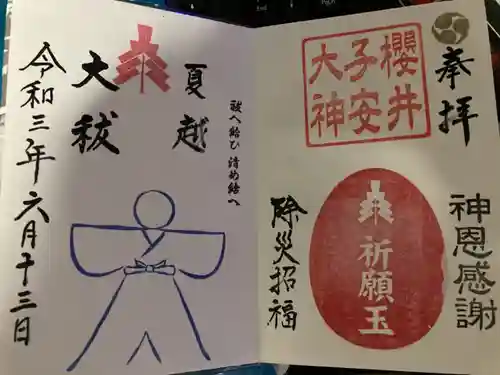 奉拝
櫻井
子安
大神
神恩感謝
祈願玉
除災招福
祓へ給ひ 清め給へ
夏越
大祓
令和三年六月十三日